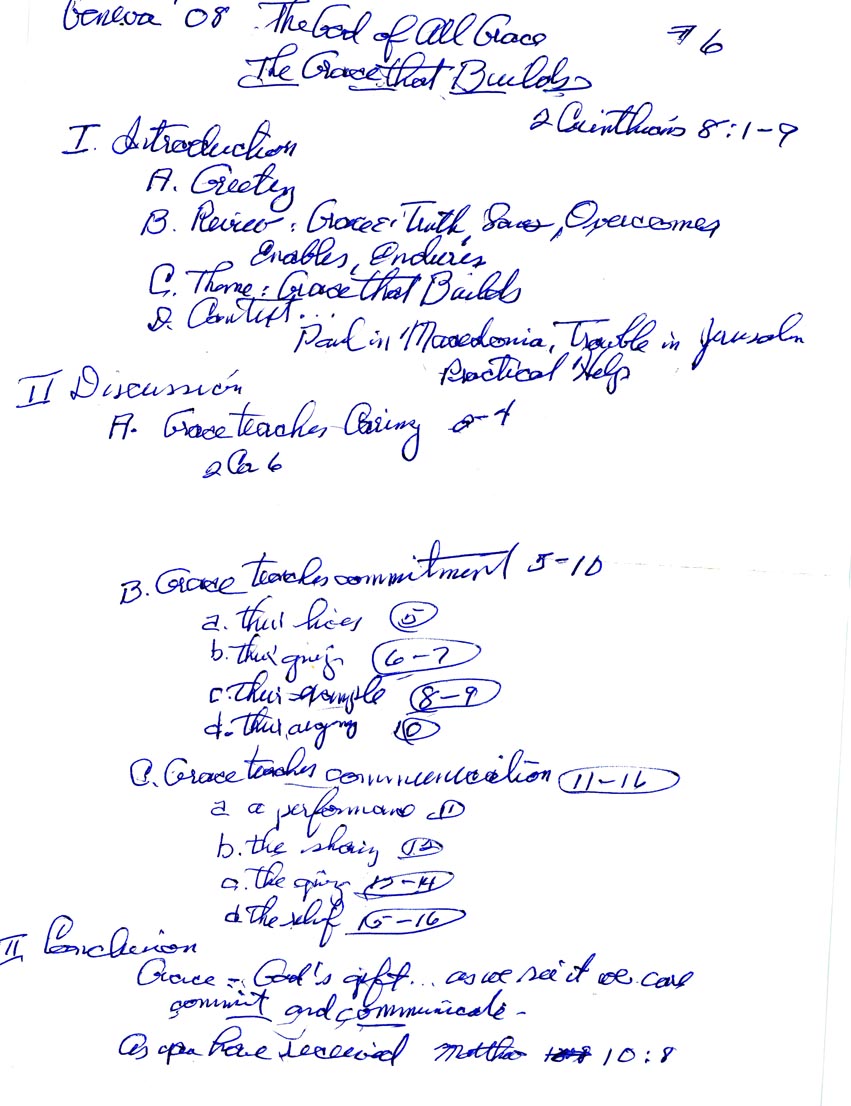 Geneva '08 The God of All Grace #6
The Grace that Builds
2 Corinthians 8:1-9
I. Introduction
A. Greeting
B. Review: Grace: Truth, Saves, Overcomes
Enables, Endures
C. Theme: Grace that Builds
D. Context...
Paul in Macedonia, Trouble in Jerusalem
Practical Help
II Discussion
A. Grace teaches Caring -4
2 Cor 6
B. Grace teaches commitment 5-10
a. their lives 5
b. their giving 6-7
c. their example 8-9
d. their 10
C. Grace teaches communication 11-16
a a performance 11
b. the sharing 12
c. the giving 13-14
d. the relief 15-16
II Conclusion
Grace - God's gift... as we see it we care
commit and communicate -
As you have received Matthew 10:8